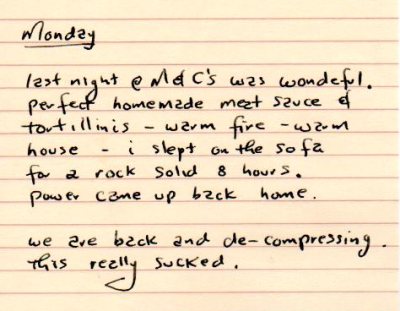 Monday
last night @ M & C's was wondeful.
perfect homemade meat sauce &
tortillinis - warm fire - warm
house - i slept on the sofa
for a rock solid 8 hours.
power came up back home.
we are back and de-compressing.
this really sucked.